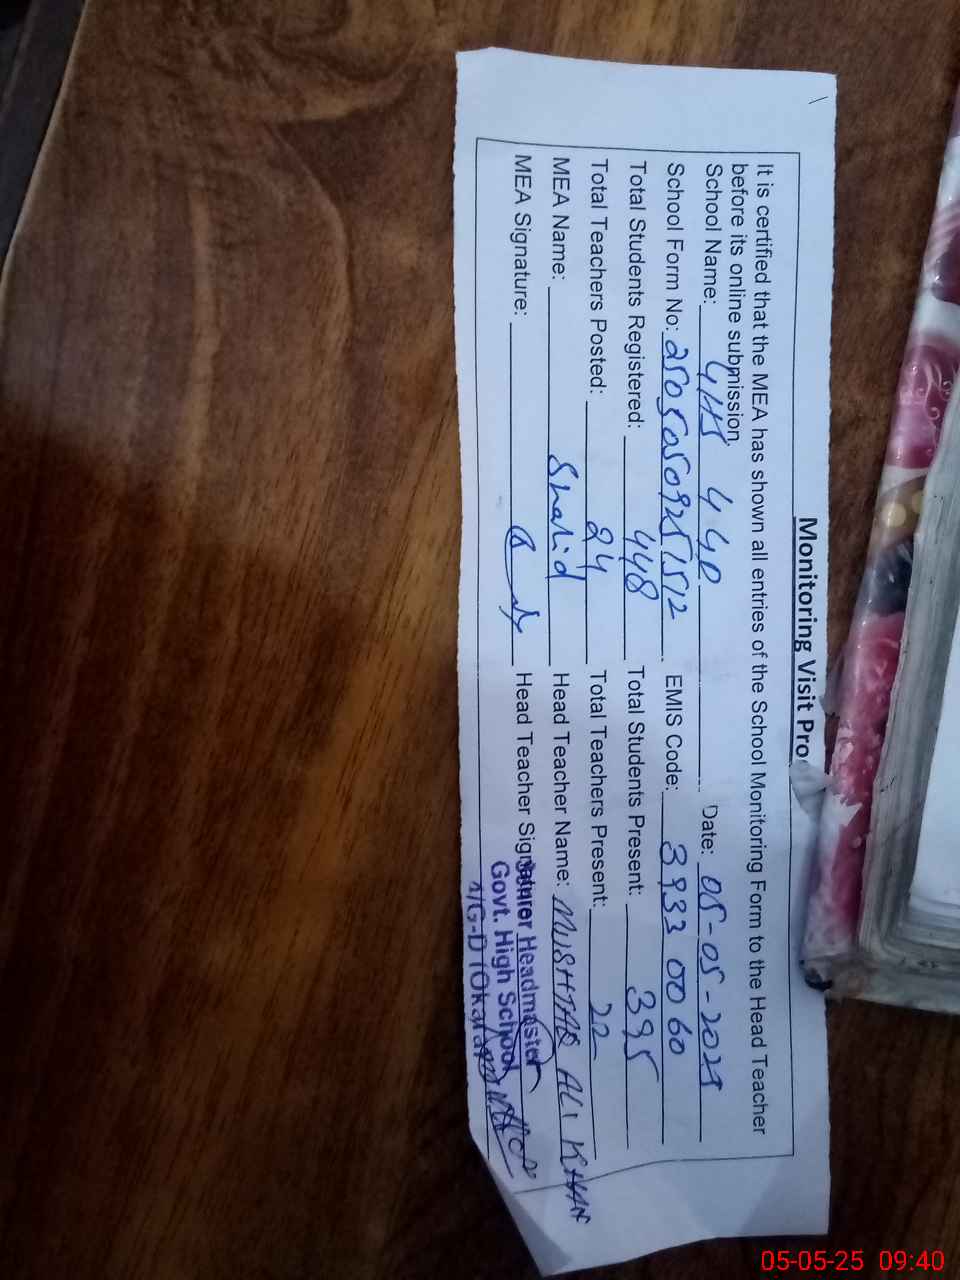 Monitoring Visit Pro
It is certified that the MEA has shown all entries of the School Monitoring Form to the Head Teacher
before its online submission.
School Name: GHS 4 GD Date: 05-05-2025
School Form No: 25050509251512 EMIS Code: 39330060
Total Students Registered: 448 Total Students Present: 395
Total Teachers Posted: 24 Total Teachers Present: 22
MEA Name: Shahid Head Teacher Name: MUSHTAQ ALI KHAN
MEA Signature: Head Teacher
Senior Headmaster
Govt. High School
4/G-D (Okara)
05-05-25 09:40